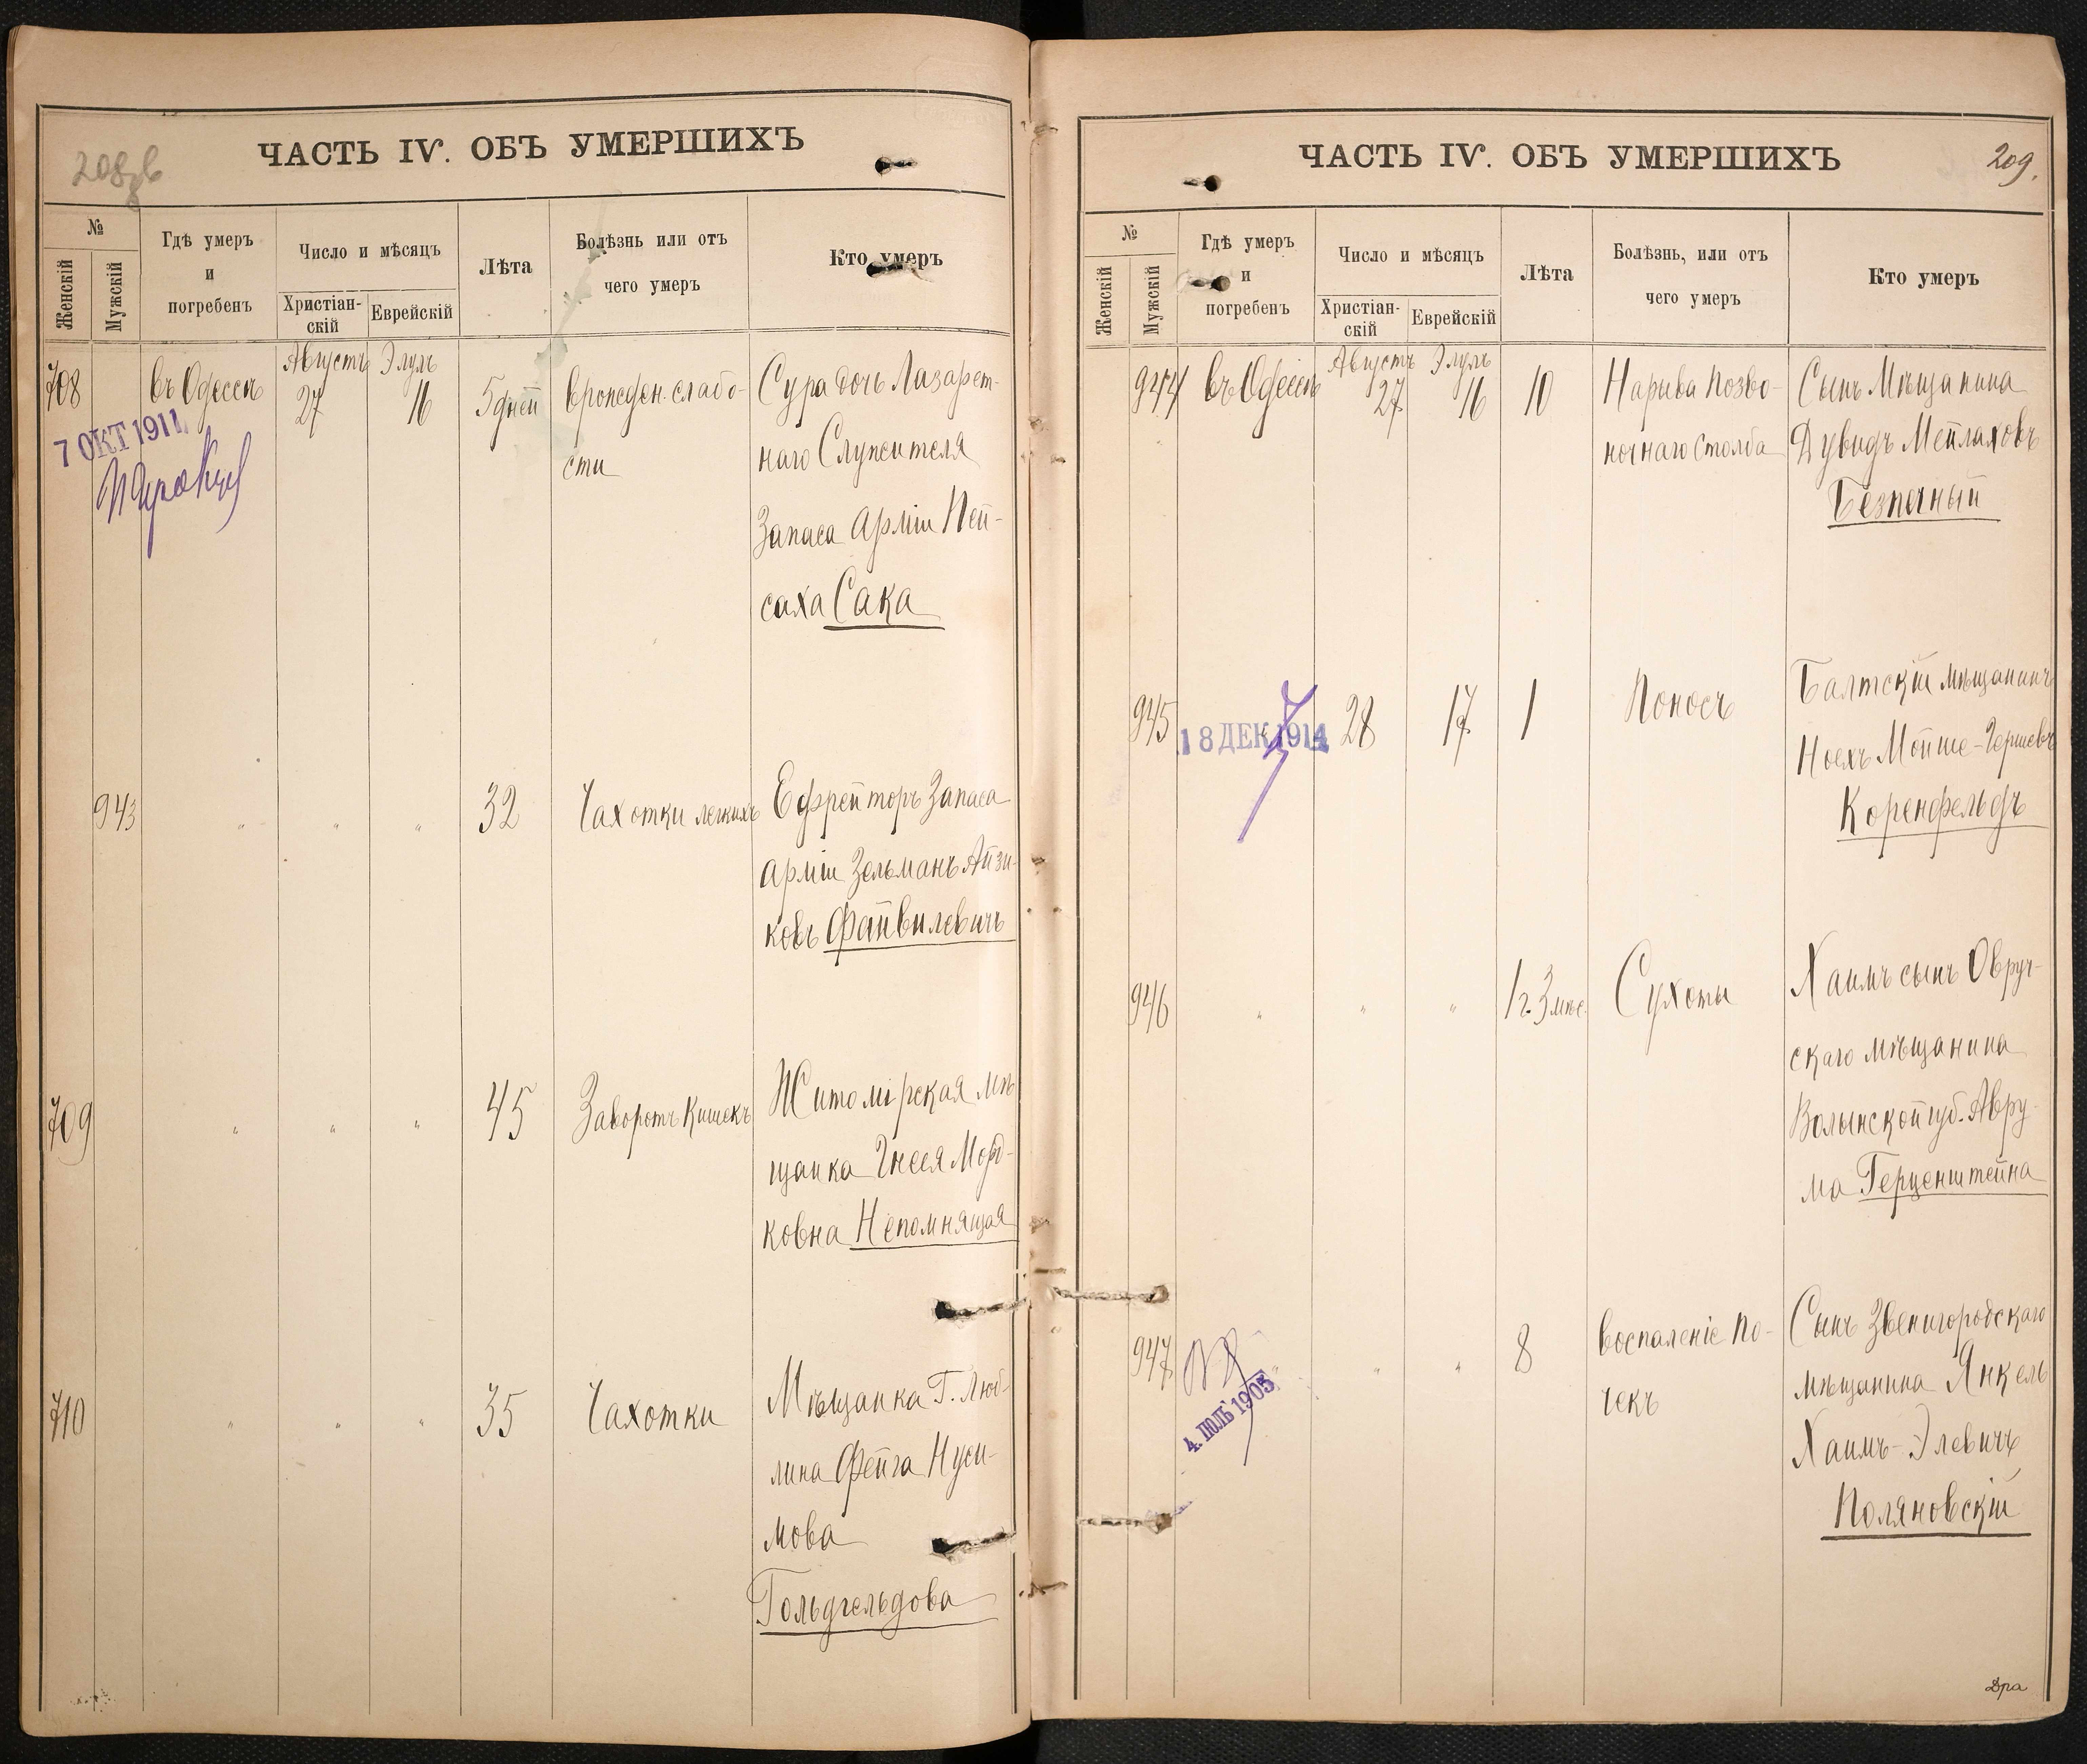 ЧАСТЬ IV. ОБЪ УМЕРШИХЪ
208
№
Женскій
Мужскій
Гдѣ умеръ
и
погребенъ
Число и мѣсяцъ
Христіан-
скій
Еврейскій
Лѣта
Болѣзнь или отъ
чего умеръ
Кто умеръ
708
въ Одессѣ
Августъ
27
Элулъ
16
5 дней
врожден. слабо-
сти
Сура дочь Лазарет-
наго Служителя
Запаса Арміи Пей-
саха Сака
7 ОКТ 1911
943
"
"
"
32
Чахотки легкихъ
Ефрейторъ Запаса
арміи Зельманъ Айзи-
ковъ Файвилевичъ
709
"
"
"
45
Заворотъ Кишекъ
Житомірская мѣ
щанка Гнеся Морд-
ковна Непомнящая
710
"
"
"
35
Чахотки
Мѣщанка Г. Люб-
лина Фейга Нуси-
мова
Гольдгельдова
ЧАСТЬ IV. ОБЪ УМЕРШИХЪ
209.
№
Женскій
Мужскій
Гдѣ умеръ
и
погребенъ
Число и мѣсяцъ
Христіан-
скій
Еврейскій
Лѣта
Болѣзнь, или отъ
чего умеръ
Кто умеръ
944
въ Одессѣ
Августъ
27
Элулъ
16
10
Нарыва позво-
ночнаго столба
Сынъ Мѣщанина
Дувидъ Мейлаховъ
Безпечный
945
18 ДЕК 1914
28
17
1
Поносъ
Балтскій мѣщанинъ
Ноехъ Мойше-Гершевъ
Коренфельдъ
946
"
"
"
1 г. 3 мѣс.
Сухоты
Хаимъ сынъ Овруч-
скаго мѣщанина
Волынской губ. Авру-
ма Герценштейна
947
"
"
"
8
воспаленіе по-
чекъ
Сынъ Звенигородскаго
мѣщанина Янкель
Хаимъ-Элевичъ
Поляновскій
4. ІЮЛЬ 1905
Дра